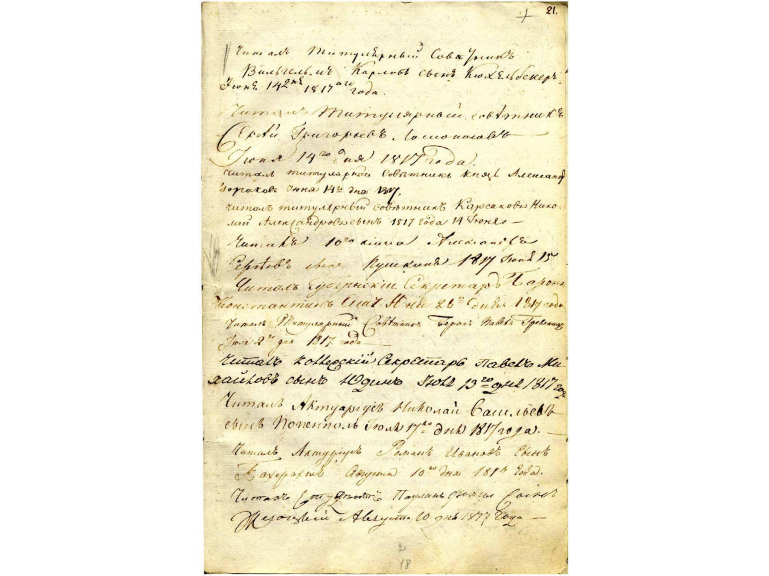 21.
Читалъ Титулярный Совѣтникъ
Вильгельмъ Карловъ сынъ Кюхельбекеръ
Іюня 14го дня 1817го года.
Читалъ Титулярный совѣтникъ
Сергѣй Григорьевъ Ломоносовъ
Іюня 14го дня 1817 года.
Читалъ титулярный Совѣтникъ князь Александръ
Горчаковъ Іюня 14го дня 1817.
Читалъ титулярный совѣтникъ Карсаковъ Нико-
лай Александровъ сынъ 1817 года 14 Іюня
Читалъ 10го класса Александръ
Сергѣевъ сынъ Пушкинъ 1817 Іюня 15
Читалъ Губернскій Секретарь Баронъ
Константинъ 1817 года
Читалъ Титулярный Совѣтникъ Баронъ Павелъ
1817 года
Читалъ Коллежскій Секретарь Павелъ Ми-
хайловъ сынъ Юдинъ Іюля 13го дня 1817 года
Читалъ Актуаріусъ Николай Васильевъ
сынъ Іюля 17го дня 1817 года.
Читалъ Актуаріусъ Романъ Ивановъ Сынъ
Августа 10го дня 1817 года.
Читалъ Студентъ сынъ
Августа 20 дня 1817 года
18